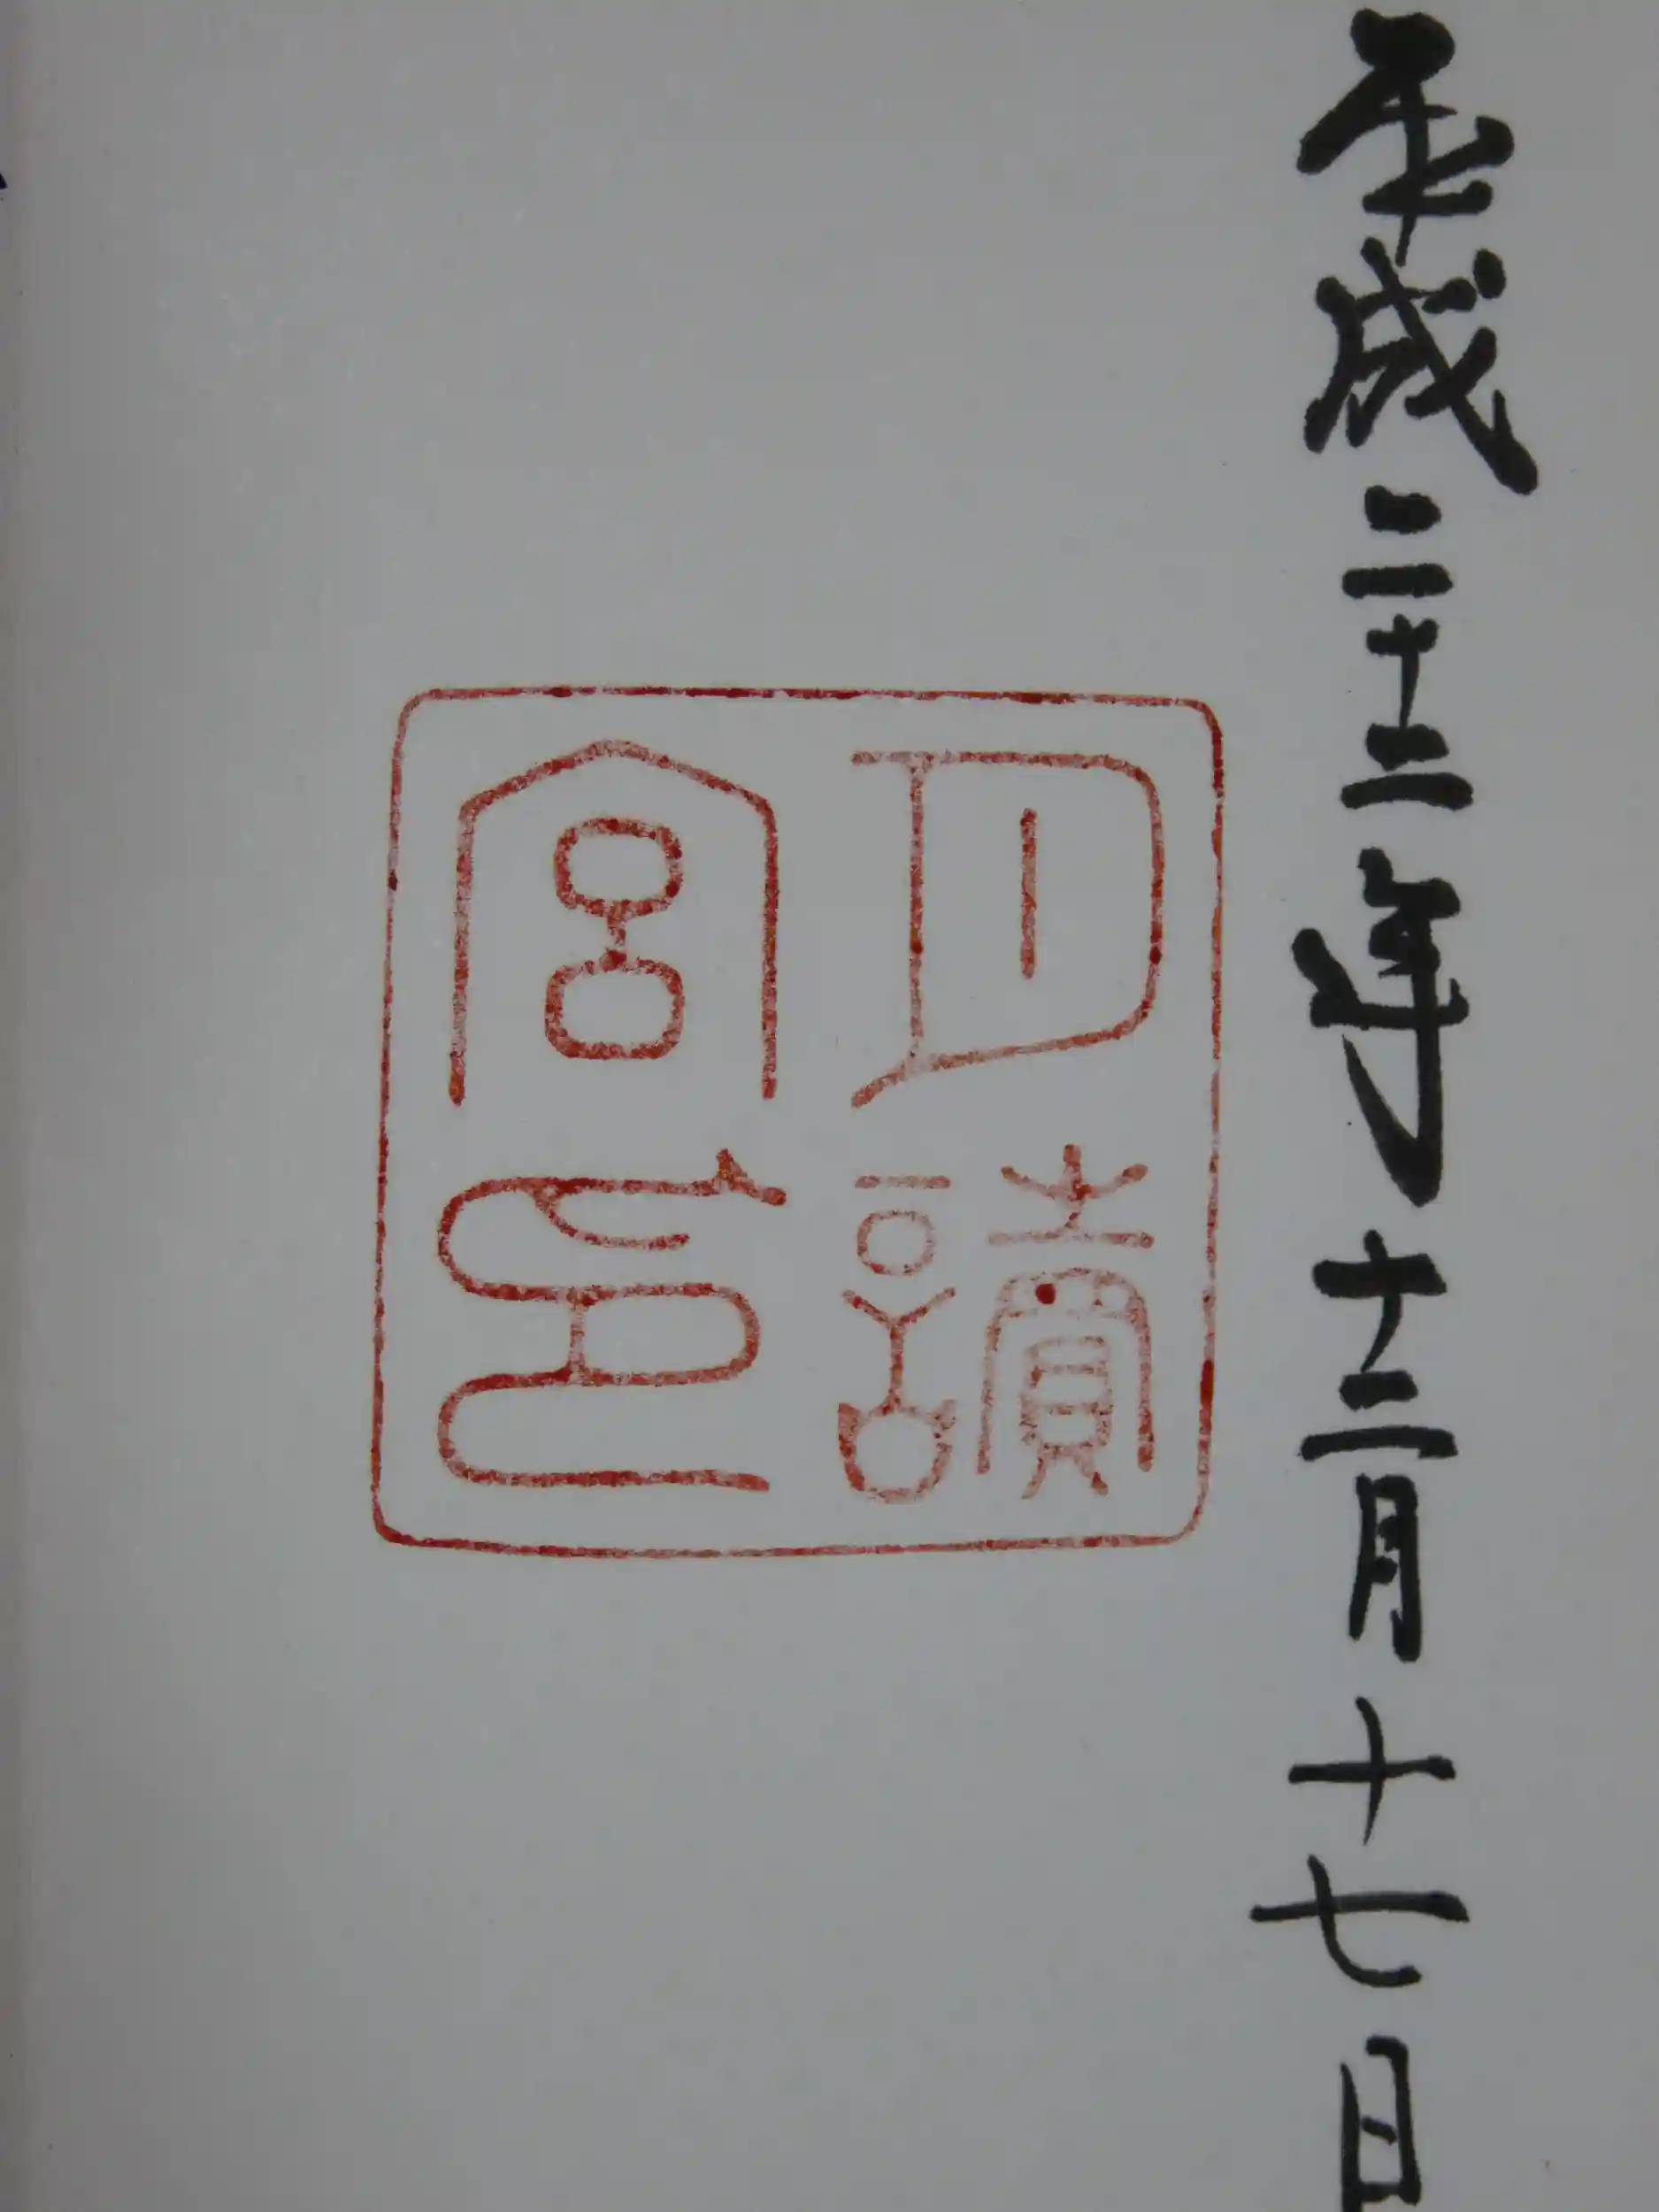 平成二十二年十二月十七日
月讀
宮印